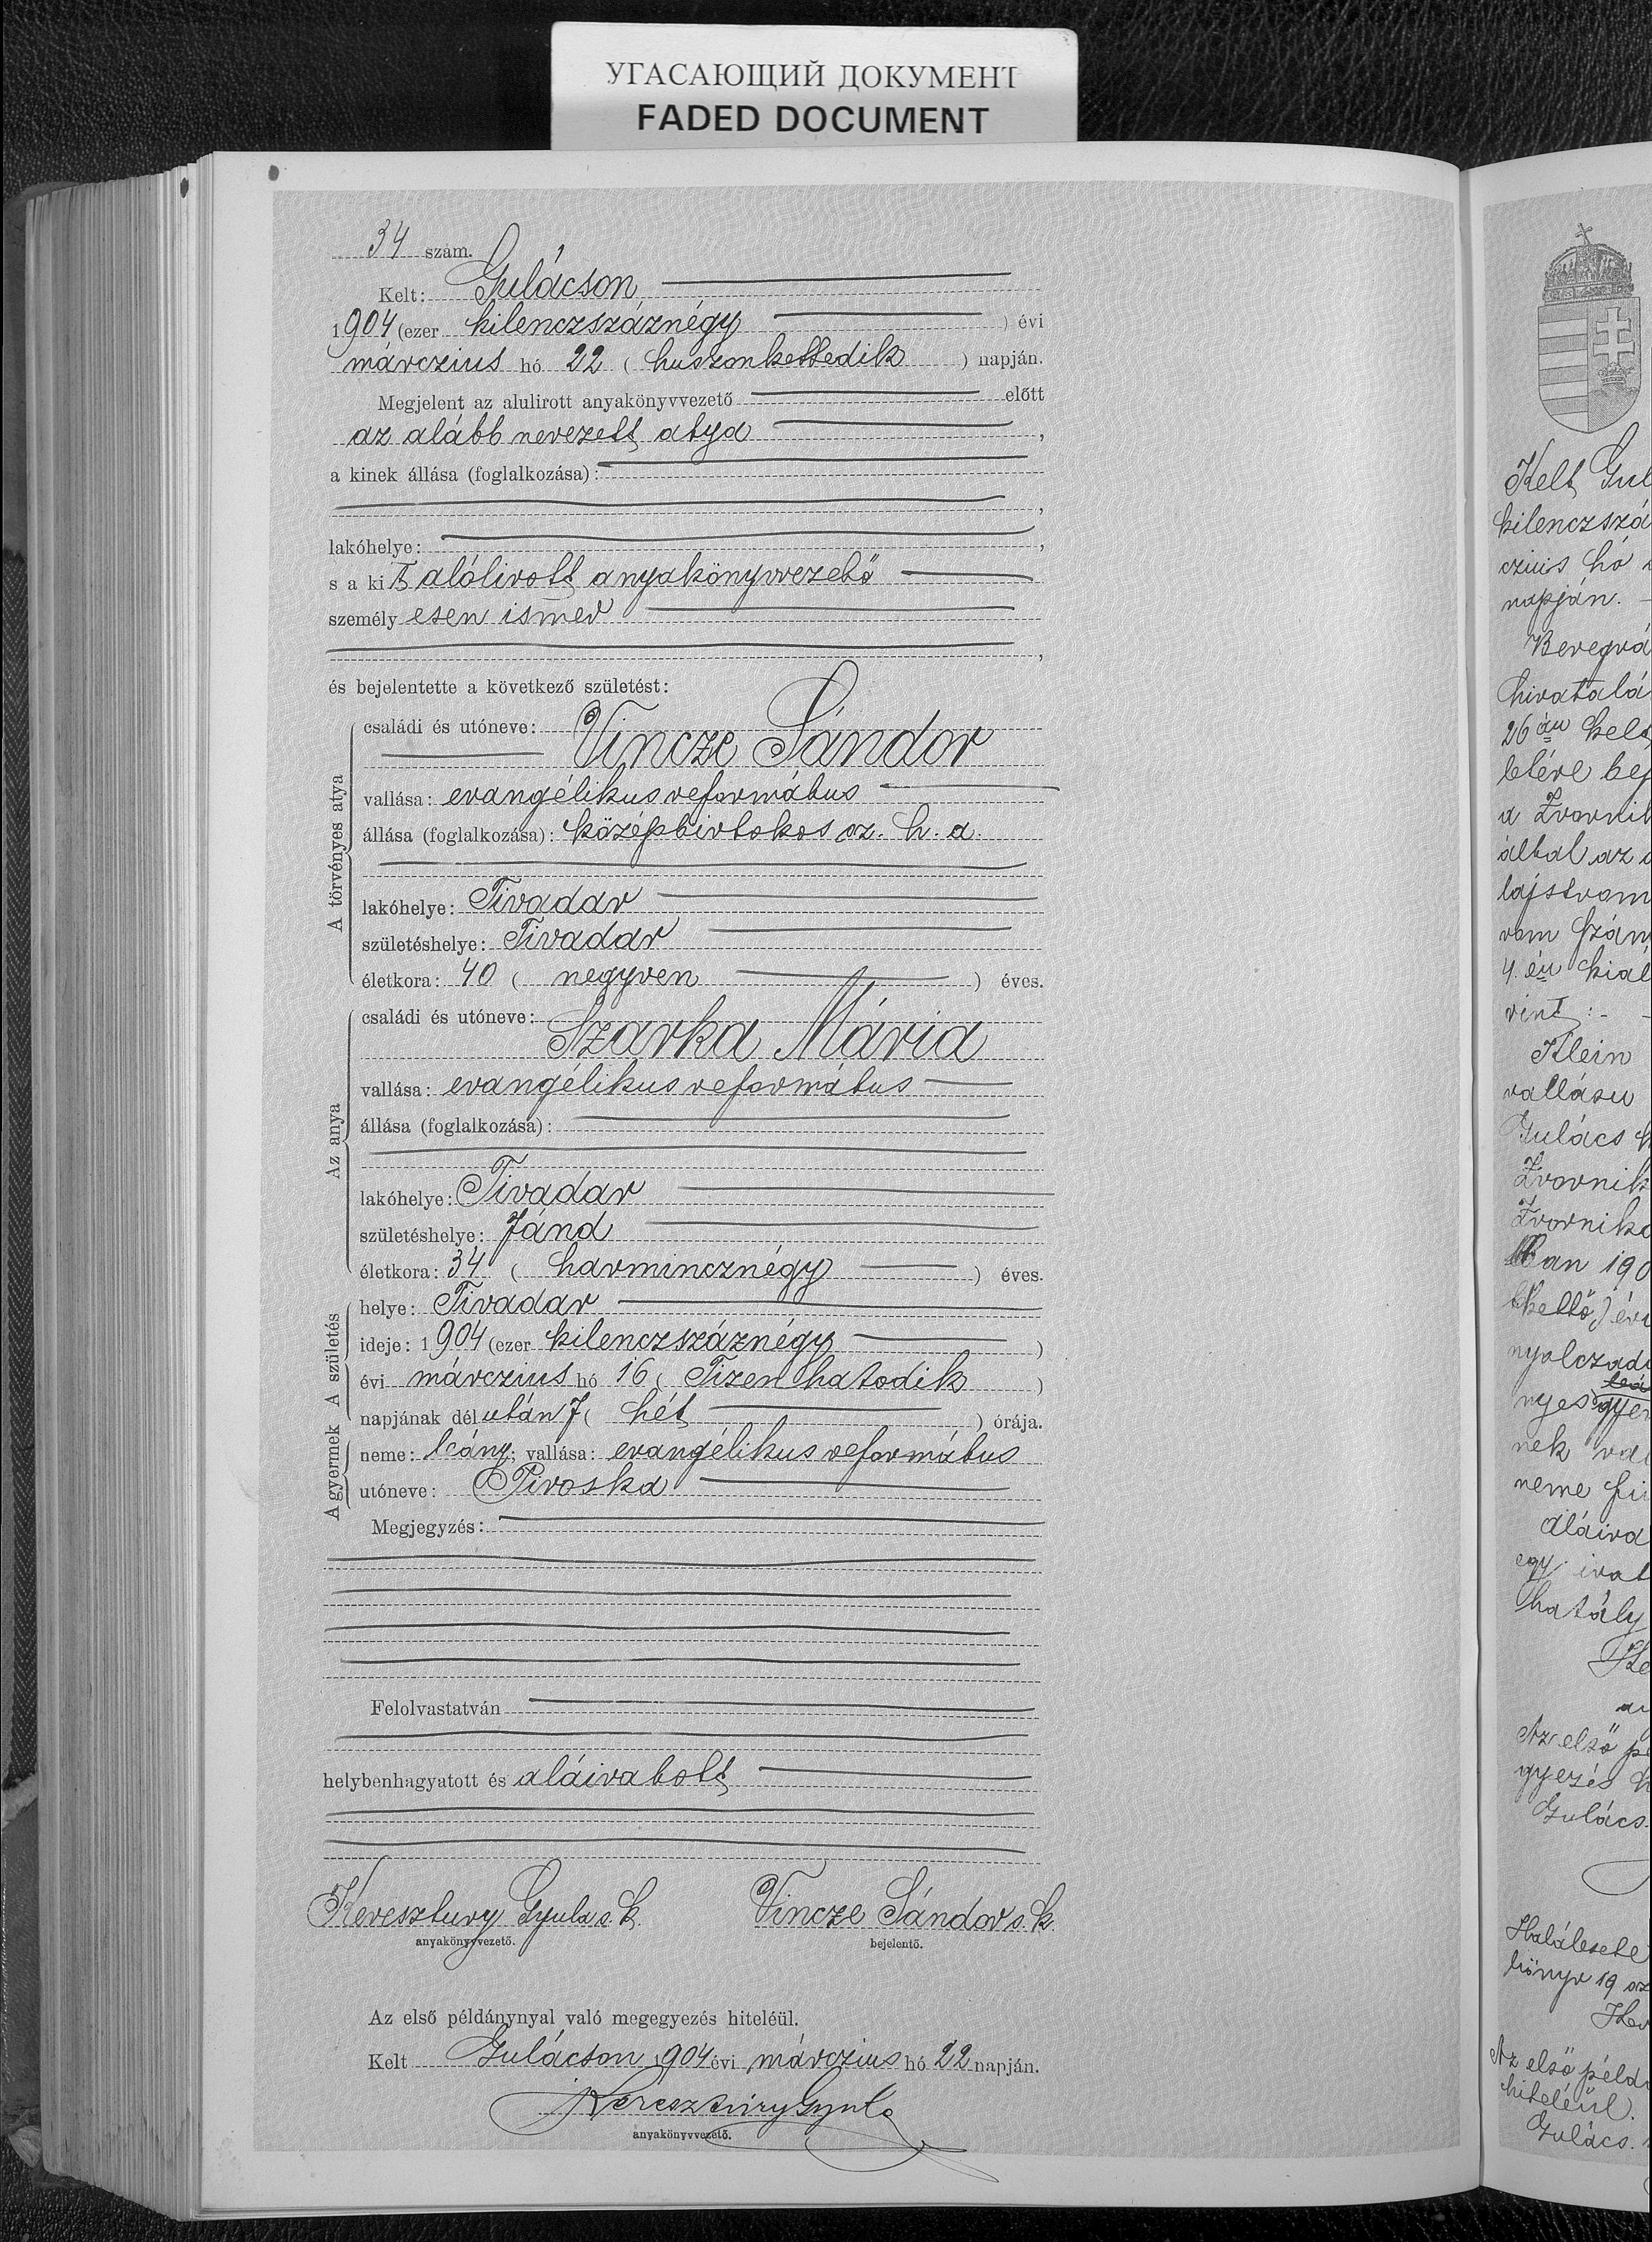 УГАСАЮЩИЙ ДОКУМЕНТ
FADED DOCUMENT
34 szám.
Kelt: Gulácson
1904 (ezer kilenczszáznégy ) évi
márczius hó 22 ( huszonkettedik ) napján.
Megjelent az alulirott anyakönyvvezető előtt
az alább nevezett atya ,
a kinek állása (foglalkozása):
,
lakóhelye: ,
s a kit alólirott anyakönyvvezető
személy esen ismer
,
és bejelentette a következő születést:
A törvényes atya
családi és utóneve:
Vincze Sándor
vallása: evangélikus református
állása (foglalkozása): középbirtokos oz. h. a.
lakóhelye: Tivadar
születéshelye: Tivadar
életkora: 40 ( negyven ) éves.
Az anya
családi és utóneve:
Szarka Mária
vallása: evangélikus református
állása (foglalkozása):
lakóhelye: Tivadar
születéshelye: Jánd
életkora: 34 ( harmincznégy ) éves.
A születés
helye: Tivadar
ideje: 1904 (ezer kilenczszáznégy )
évi márczius hó 16 ( Tizenhatodik )
napjának dél után 7 ( hét ) órája.
A gyermek
neme: leány; vallása: evangélikus református
utóneve: Piroska
Megjegyzés:
Felolvastatván
helybenhagyatott és aláiratott
Keresztury Gyula s. k. Vincze Sándor s. k.
anyakönyvvezető. bejelentő.
Az első példánynyal való megegyezés hiteléül.
Kelt Gulácson 1904 évi márczius hó 22 napján.
Keresztúry Gyula
anyakönyvvezető.
Kelt Gul
kilenczszá
czius hó
napján.
Beregvá
hivatalá
26 án kelt
letére bej
a Zvornik
által az
lajstrom
rom szám
4. én kiál
rint :-
Klein
vallásu
Gulács
Zvornik
Zvornika
ban 190
kettő) évi
nyolczadi
leá
nyes gyer
nek
neme fi
Aláira
egy irat
hatály
Ke
Az első p
gyezés h
Gulács.
Halálesete
könyv 19 sz
Ker
Az első példá
hiteléül.
Gulács.